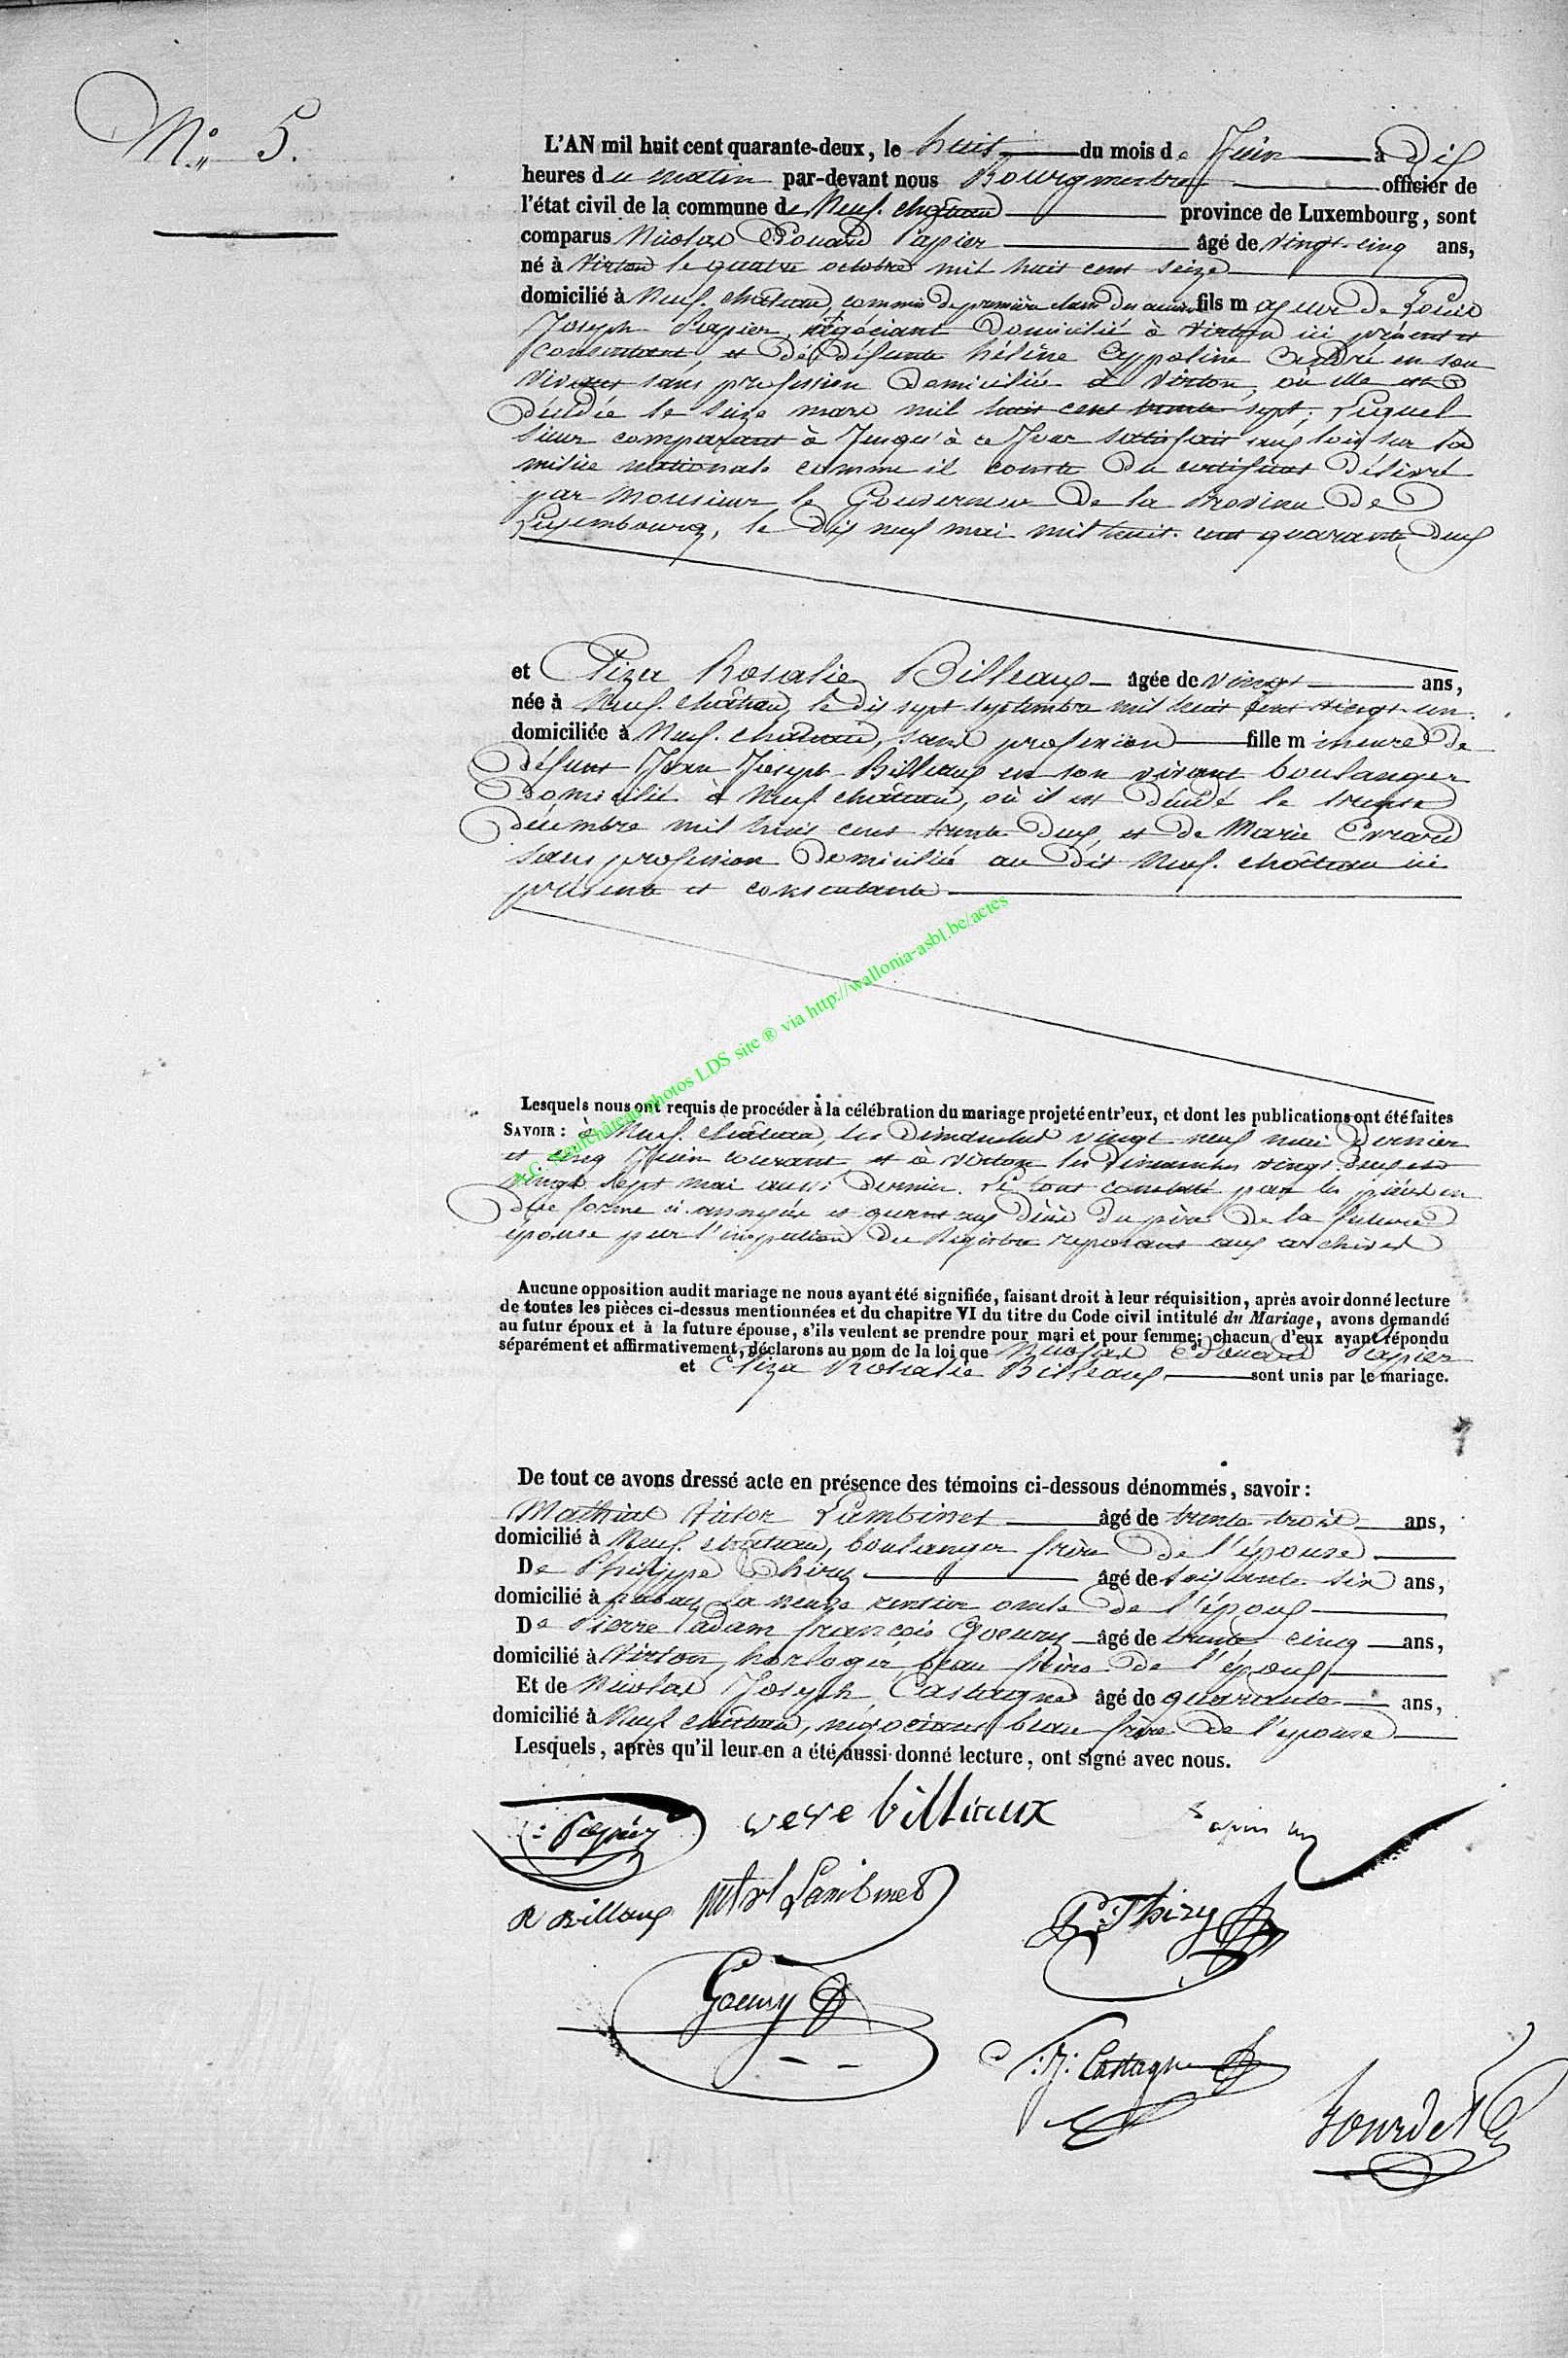 N° 5.
L'AN mil huit cent quarante-deux, le huit du mois de Juin à dix
heures du matin par-devant nous Bourgmestre officier de
l'état civil de la commune de Neuf-château province de Luxembourg, sont
comparus Nicolas Edouard Papier âgé de vingt-cinq ans,
né à Virton le quatre octobre mil huit cent seize
domicilié à Neuf-château, commis de première classe des fils majeur de Louis
Joseph Papier, négociant domicilié à Virton ici présent et
consentant, et de défunte hélène André en son
vivant sans profession domiciliée à Virton, où elle est
décédée le seize mars mil huit cent trente sept; Lequel
sieur comparant à Jusqu'à ce Jour satisfait aux lois sur la
milice nationale comme il conste du certificat délivré
par Monsieur le Gouverneur de la Province de
Luxembourg, le dix neuf mai mil huit cent quarante deux
et Eliza Rosalie Billeaux âgée de vingt ans,
née à Neuf-château, le dix sept septembre mil huit cent vingt-un
domiciliée à Neuf-château, sans profession fille mineure de
défunt Jean Joseph Billeaux en son vivant boulanger
domicilié à Neuf-château, où il est décédé le trente
décembre mil huit cent trente deux, et de Marie Evrard
sans profession domiciliée au dit Neuf-château ici
présente et consentante
A.C. Neufchâteau photos LDS site ® via http://wallonia-asbl.be/actes
Lesquels nous ont requis de procéder à la célébration du mariage projeté entr'eux, et dont les publications ont été faites
SAVOIR : à Neuf-château, les dimanches vingt-neuf mai dernier
et cinq Juin courant et à Virton les dimanches vingt deux et
vingt sept mai aussi dernier. Le tout constaté par les pièces en
due forme ci-annexées et quant aux décès du père de la future
épouse par l'inspection du Registre reposant aux archives
Aucune opposition audit mariage ne nous ayant été signifiée, faisant droit à leur réquisition, après avoir donné lecture
de toutes les pièces ci-dessus mentionnées et du chapitre VI du titre du Code civil intitulé du Mariage, avons demandé
au futur époux et à la future épouse, s'ils veulent se prendre pour mari et pour femme; chacun d'eux ayant répondu
séparément et affirmativement, déclarons au nom de la loi que Nicolas Edouard Papier
et Eliza Rosalie Billeaux sont unis par le mariage.
De tout ce avons dressé acte en présence des témoins ci-dessous dénommés, savoir :
Mathias Victor Lambinet âgé de trente-trois ans,
domicilié à Neuf-château, boulanger frère de l'épouse
De Philippe Thiry âgé de soixante-six ans,
domicilié à habay la neuve rentier oncle de l'époux
De Pierre adam françois Goeury âgé de trente cinq ans,
domicilié à Virton, horloger, beau frère de l'époux
Et de Nicolas Joseph Castagne âgé de quarante ans,
domicilié à Neuf château, négociant beau-frère de l'épouse
Lesquels, après qu'il leur en a été aussi donné lecture, ont signé avec nous.
Papier veve billieaux
R Billaux Lambinet P. Thiry
Goeury
N. J. Castagne
Gourdet